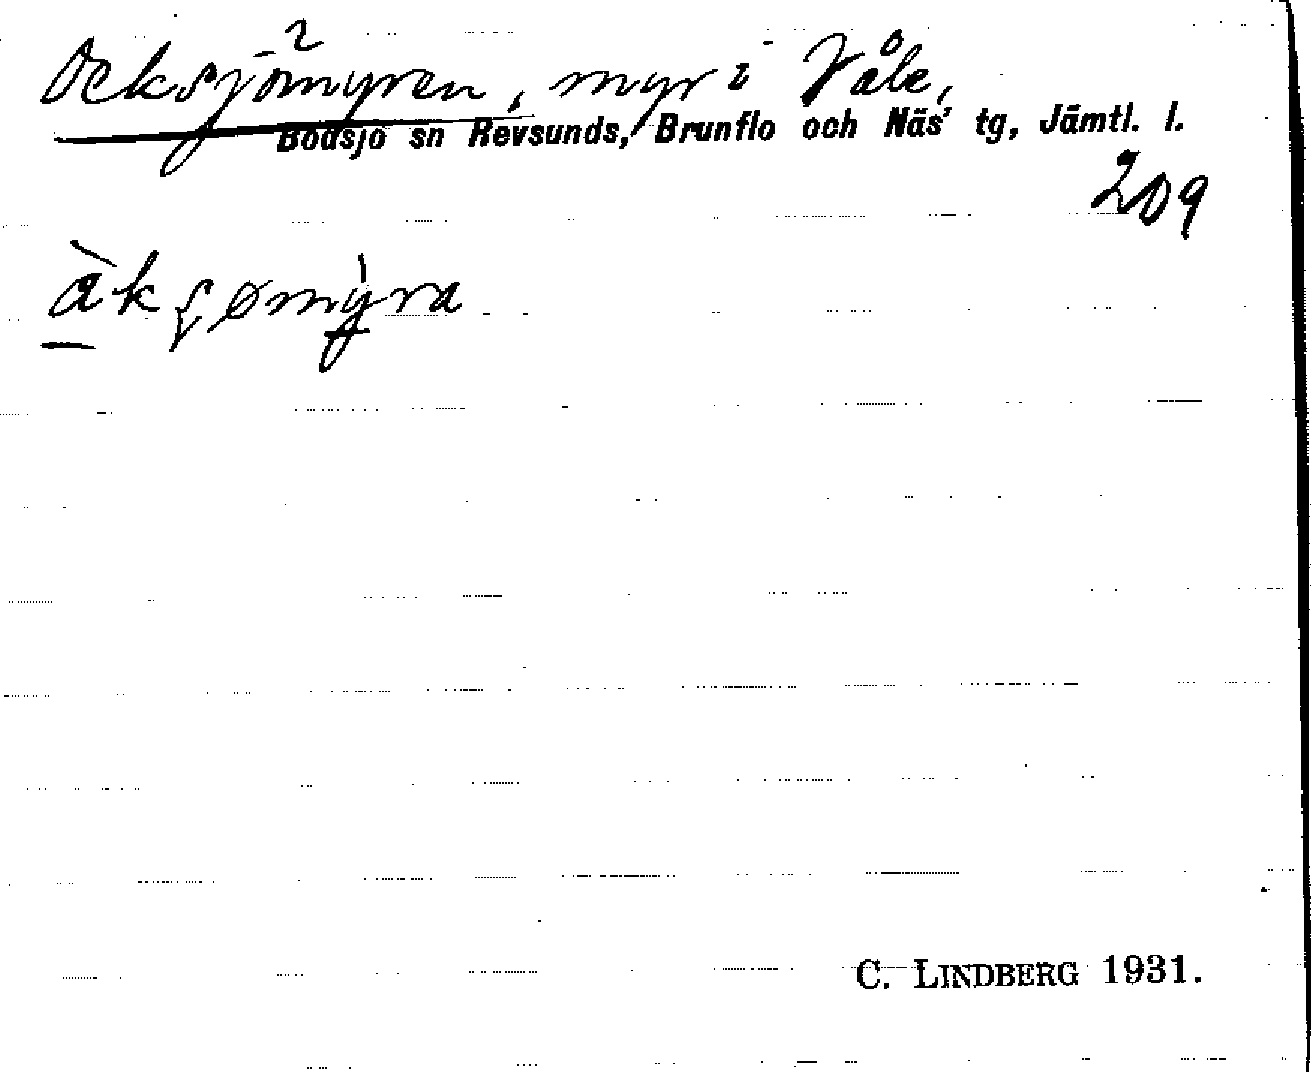 Ocksjömyren, myr i Våle,
Bodsjö sn Revsunds, Brunflo och Näs' tg, Jämtl. l.
209
C. LINDBERG 1931.